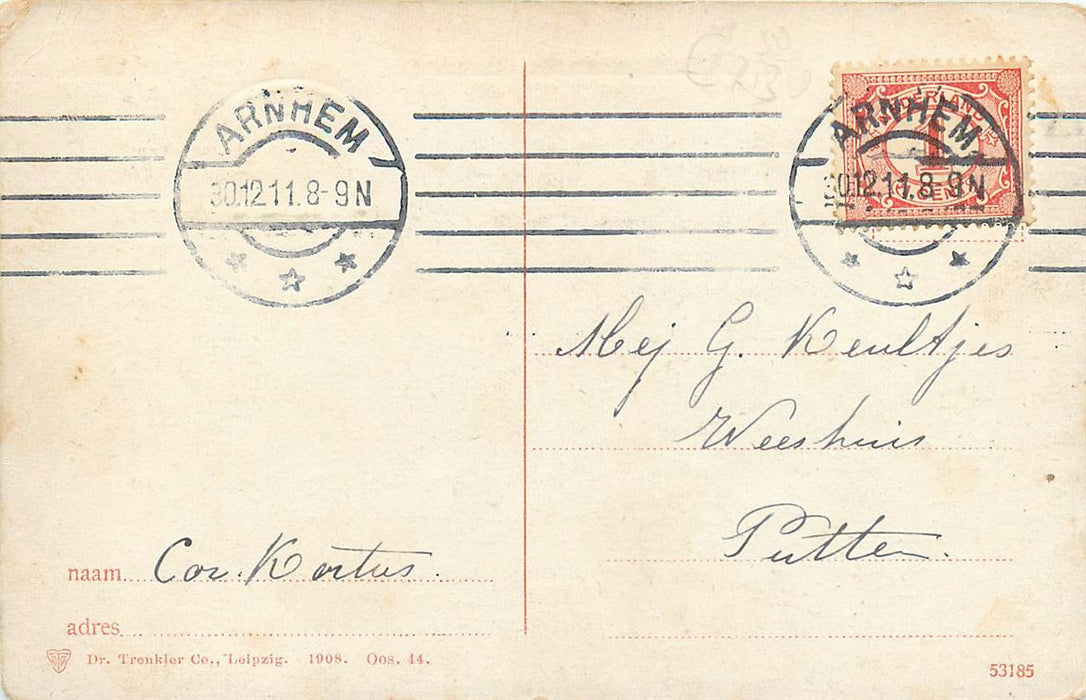 ARNHEM
30.12.11.8-9N
NEDERLAND
1
CENT
ARNHEM
30.12.11.8-9N
Mej G. Keultjes
Weeshuis
Putten.
naam Cor. Kortus.
adres
Dr. Trenkler Co., Leipzig. 1908. Oos. 44.
53185